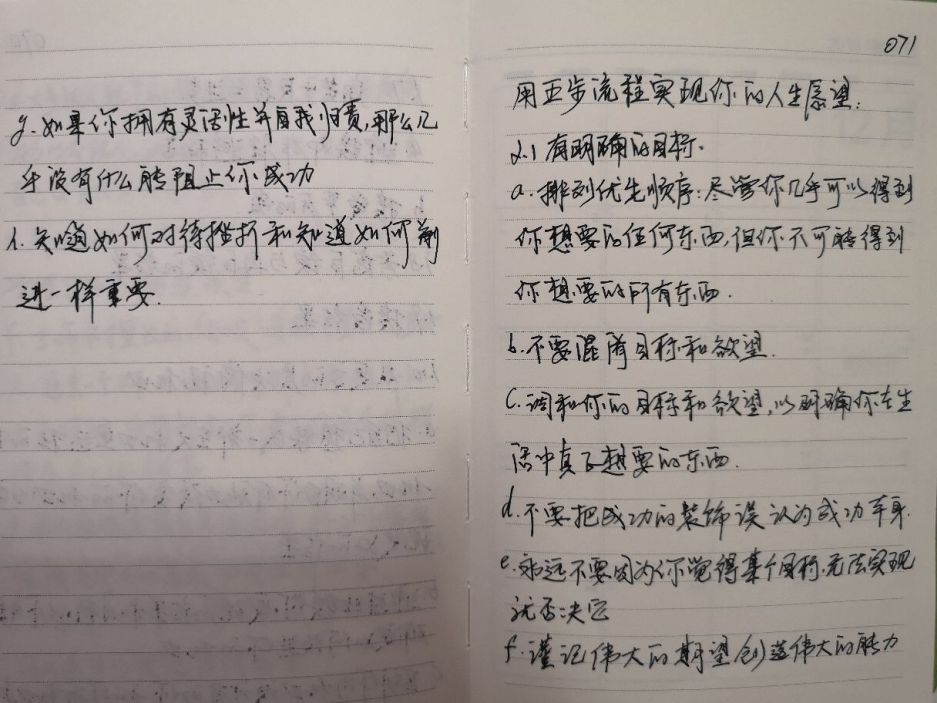 g.如果你拥有灵活性并自我归责,那么几
乎没有什么能阻止你成功
h.知道如何对待挫折和知道如何前
进一样重要.
071
用五步流程实现你的人生愿望:
2.1有明确的目标.
a.排列优先顺序:尽管你几乎可以得到
你想要的任何东西,但你不可能得到
你想要的所有东西.
b.不要混淆目标和欲望.
c.调和你的目标和欲望,以明确你在生
活中真正想要的东西.
d.不要把成功的装饰误认为成功本身.
e.永远不要因为你觉得某个目标无法实现
就否决它
f.谨记伟大的期望创造伟大的能力